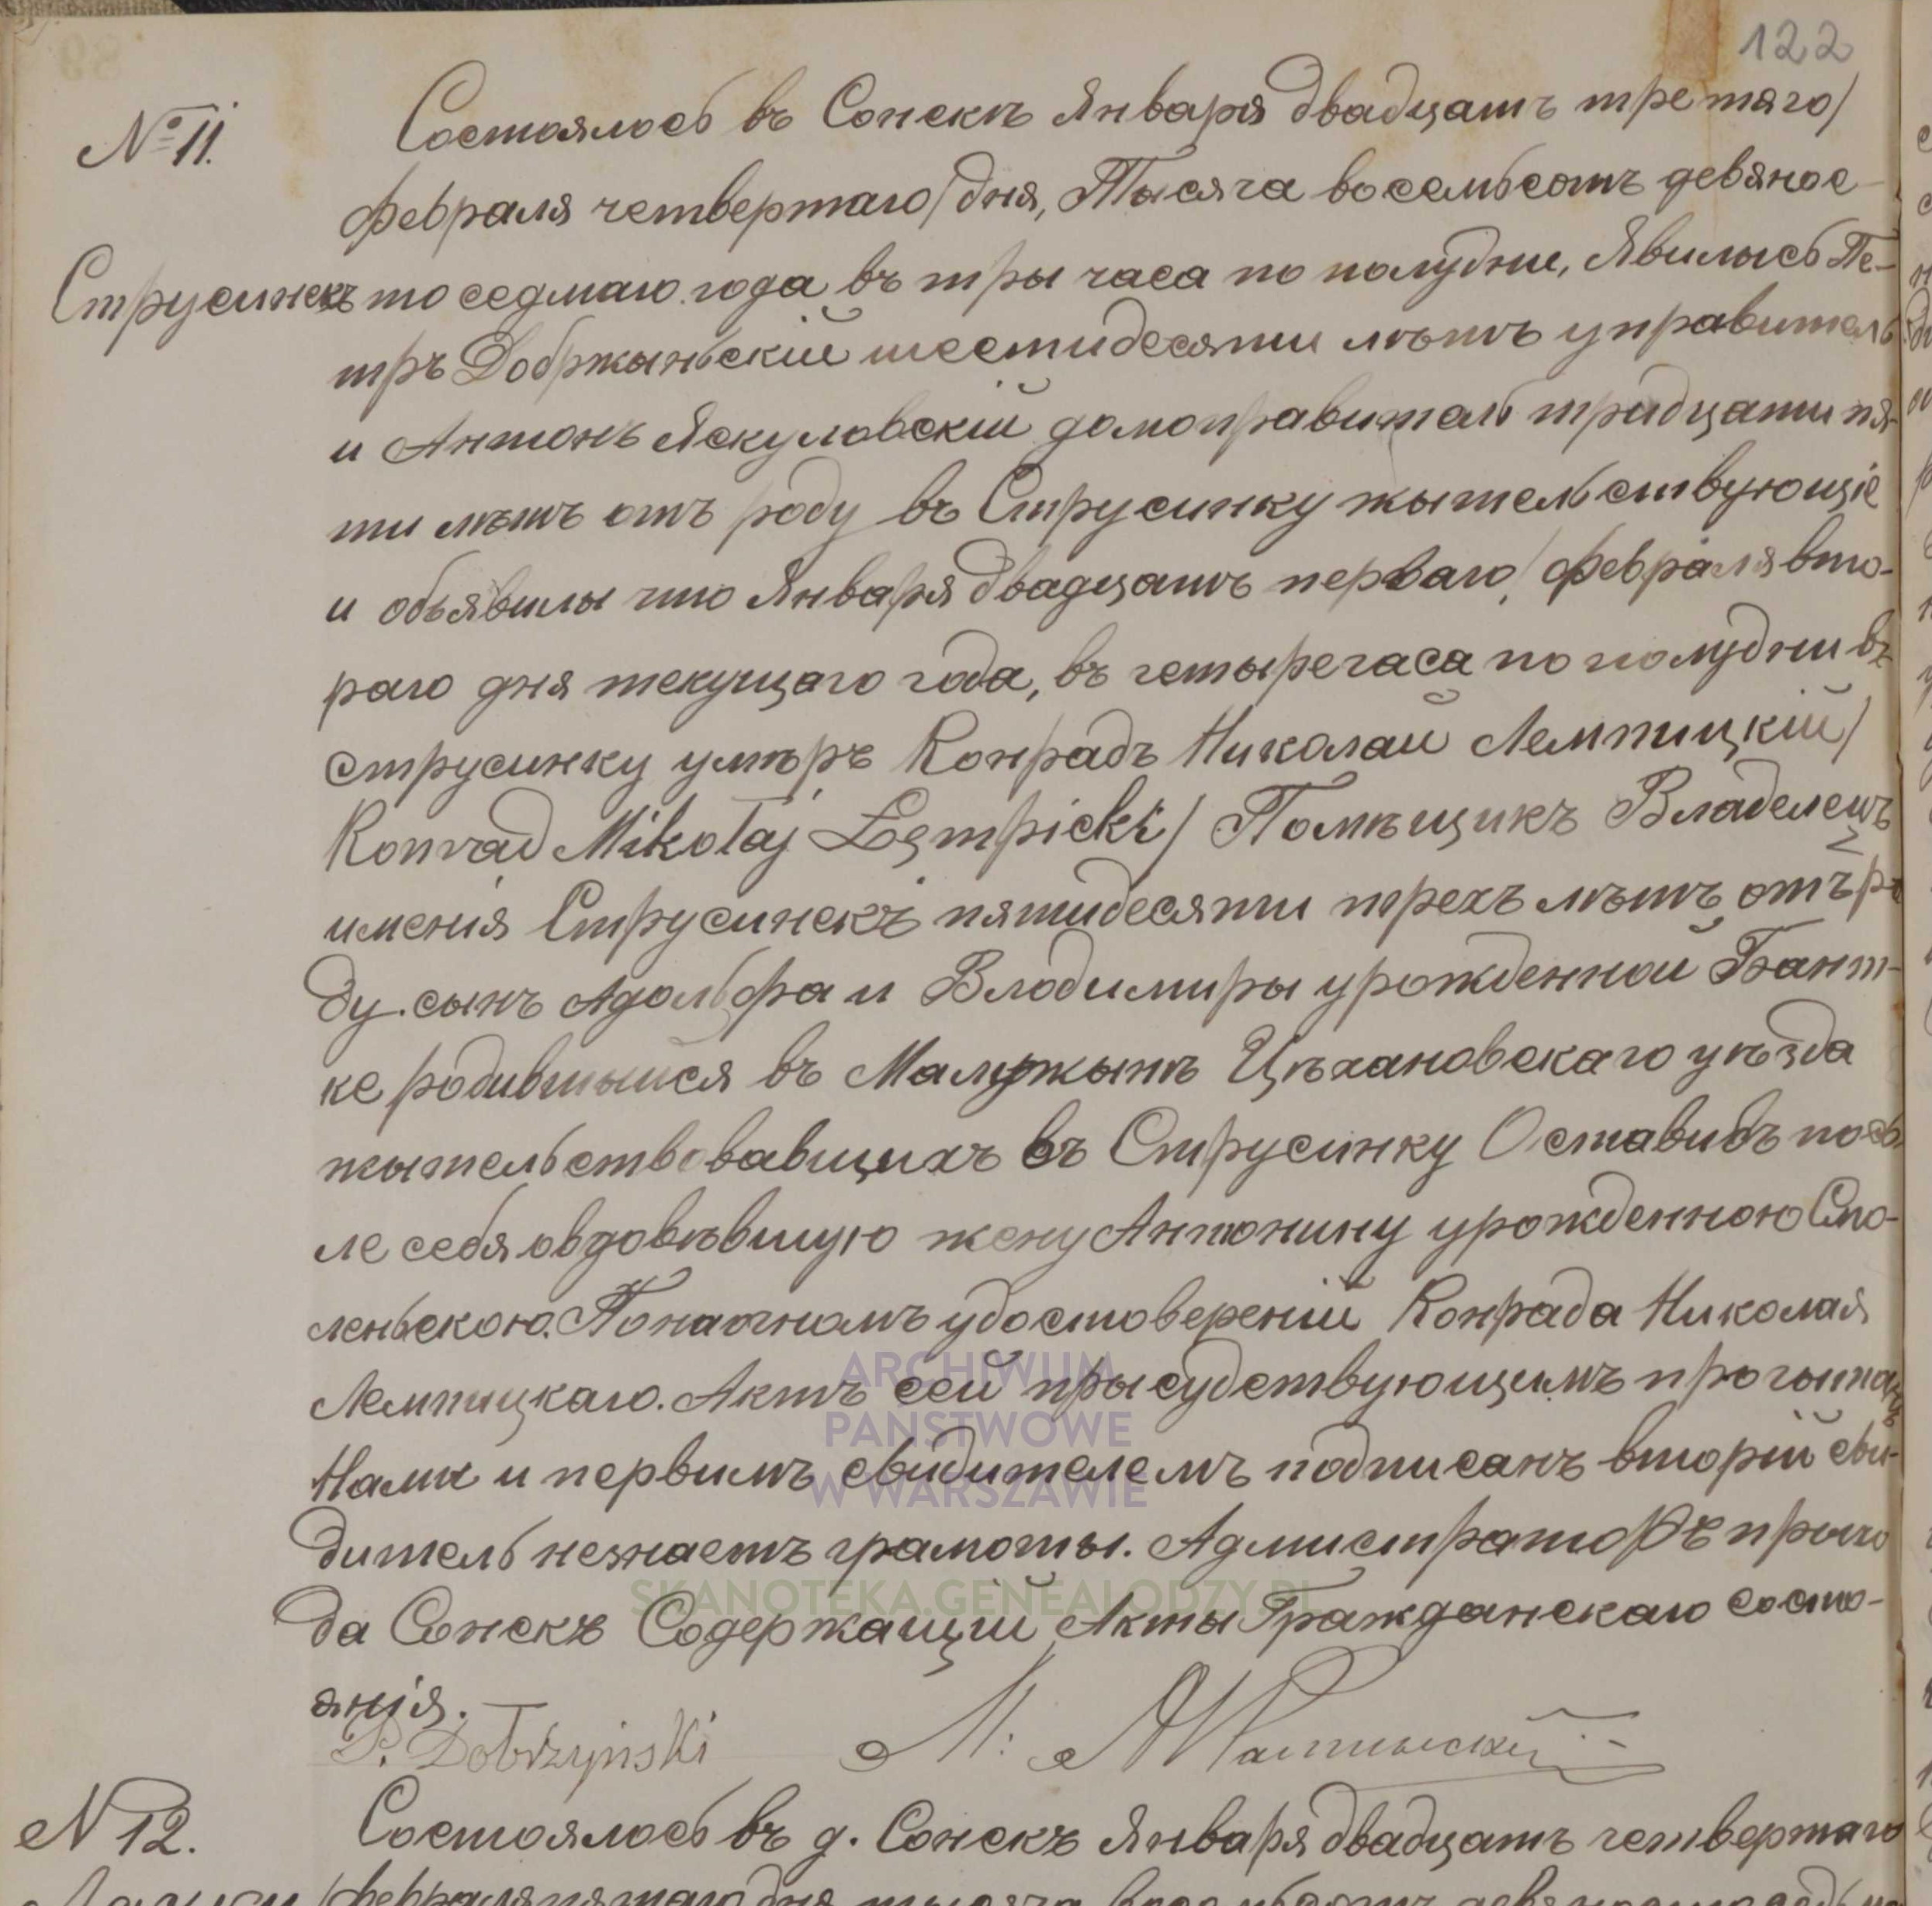 122
№ 11.
Состоялось въ Сонскѣ Января двадцать третяго/
Февраля четвертаго/дня, Тысяча восемьсотъ девянос-
Струсинекъ
то седмаго года въ тры часа по полудни, Явились Пе-
тръ Добржыньскій шестидесяти лѣтъ управитель
и Антонъ Яскуловскій домоправитель тридцати пя-
ти лѣтъ отъ роду въ Струсинку жытельствующіе
и объявилы что Января двадцать перваго/Февраля вто-
раго дня текущаго года, въ четыре часа по полудни въ
струсинку умѣръ Конрадъ Николай Лемпицкій/
Konrad Mikołaj Łempicki/ Помѣщикъ Владелецъ
именія Струсинекъ пятидесяти трехъ лѣтъ отъ ро
ду. сынъ Адольфа и Влодимиры урожденной Бант-
ке родившыйся въ Малужынѣ Цѣхановскаго уѣзда
жытельствовавшихъ въ Струсинку Оставивъ пос
ле себя овдовѣвшую жену Антонину урожденною Смо-
леньскою. Понаочномъ удостоверении Конрада Николая
Лемпицкаго. Актъ сей прысудствующимъ прочытанъ
Нами и первимъ свидителемъ подписанъ вторій сви-
дитель незнаетъ грамоты. Адмистраторъ прыхо
да Сонскъ Содержащій Акты Гражданскаго состо-
янія.
P. Dobrzyński
ARCHIWUM
PAŃSTWOWE
W WARSZAWIE
SKANOTEKA.GENEALODZY.PL
N 12.
Состоялось въ д. Сонскъ Января двадцать четвертаго
февраля пятаго дня тысяча